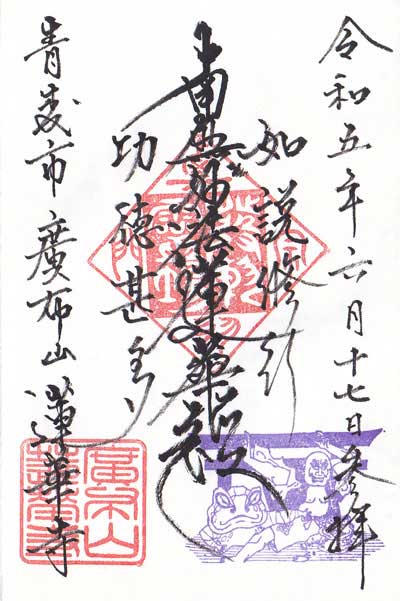 令和五年六月十七日参拝
如説修行
南無妙法蓮華経
功徳甚多
青森市廣布山蓮華寺
廣布山
蓮華寺